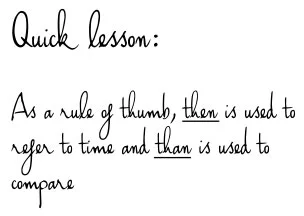 Quick lesson:
As a rule of thumb, then is used to
refer to time and than is used to
compare